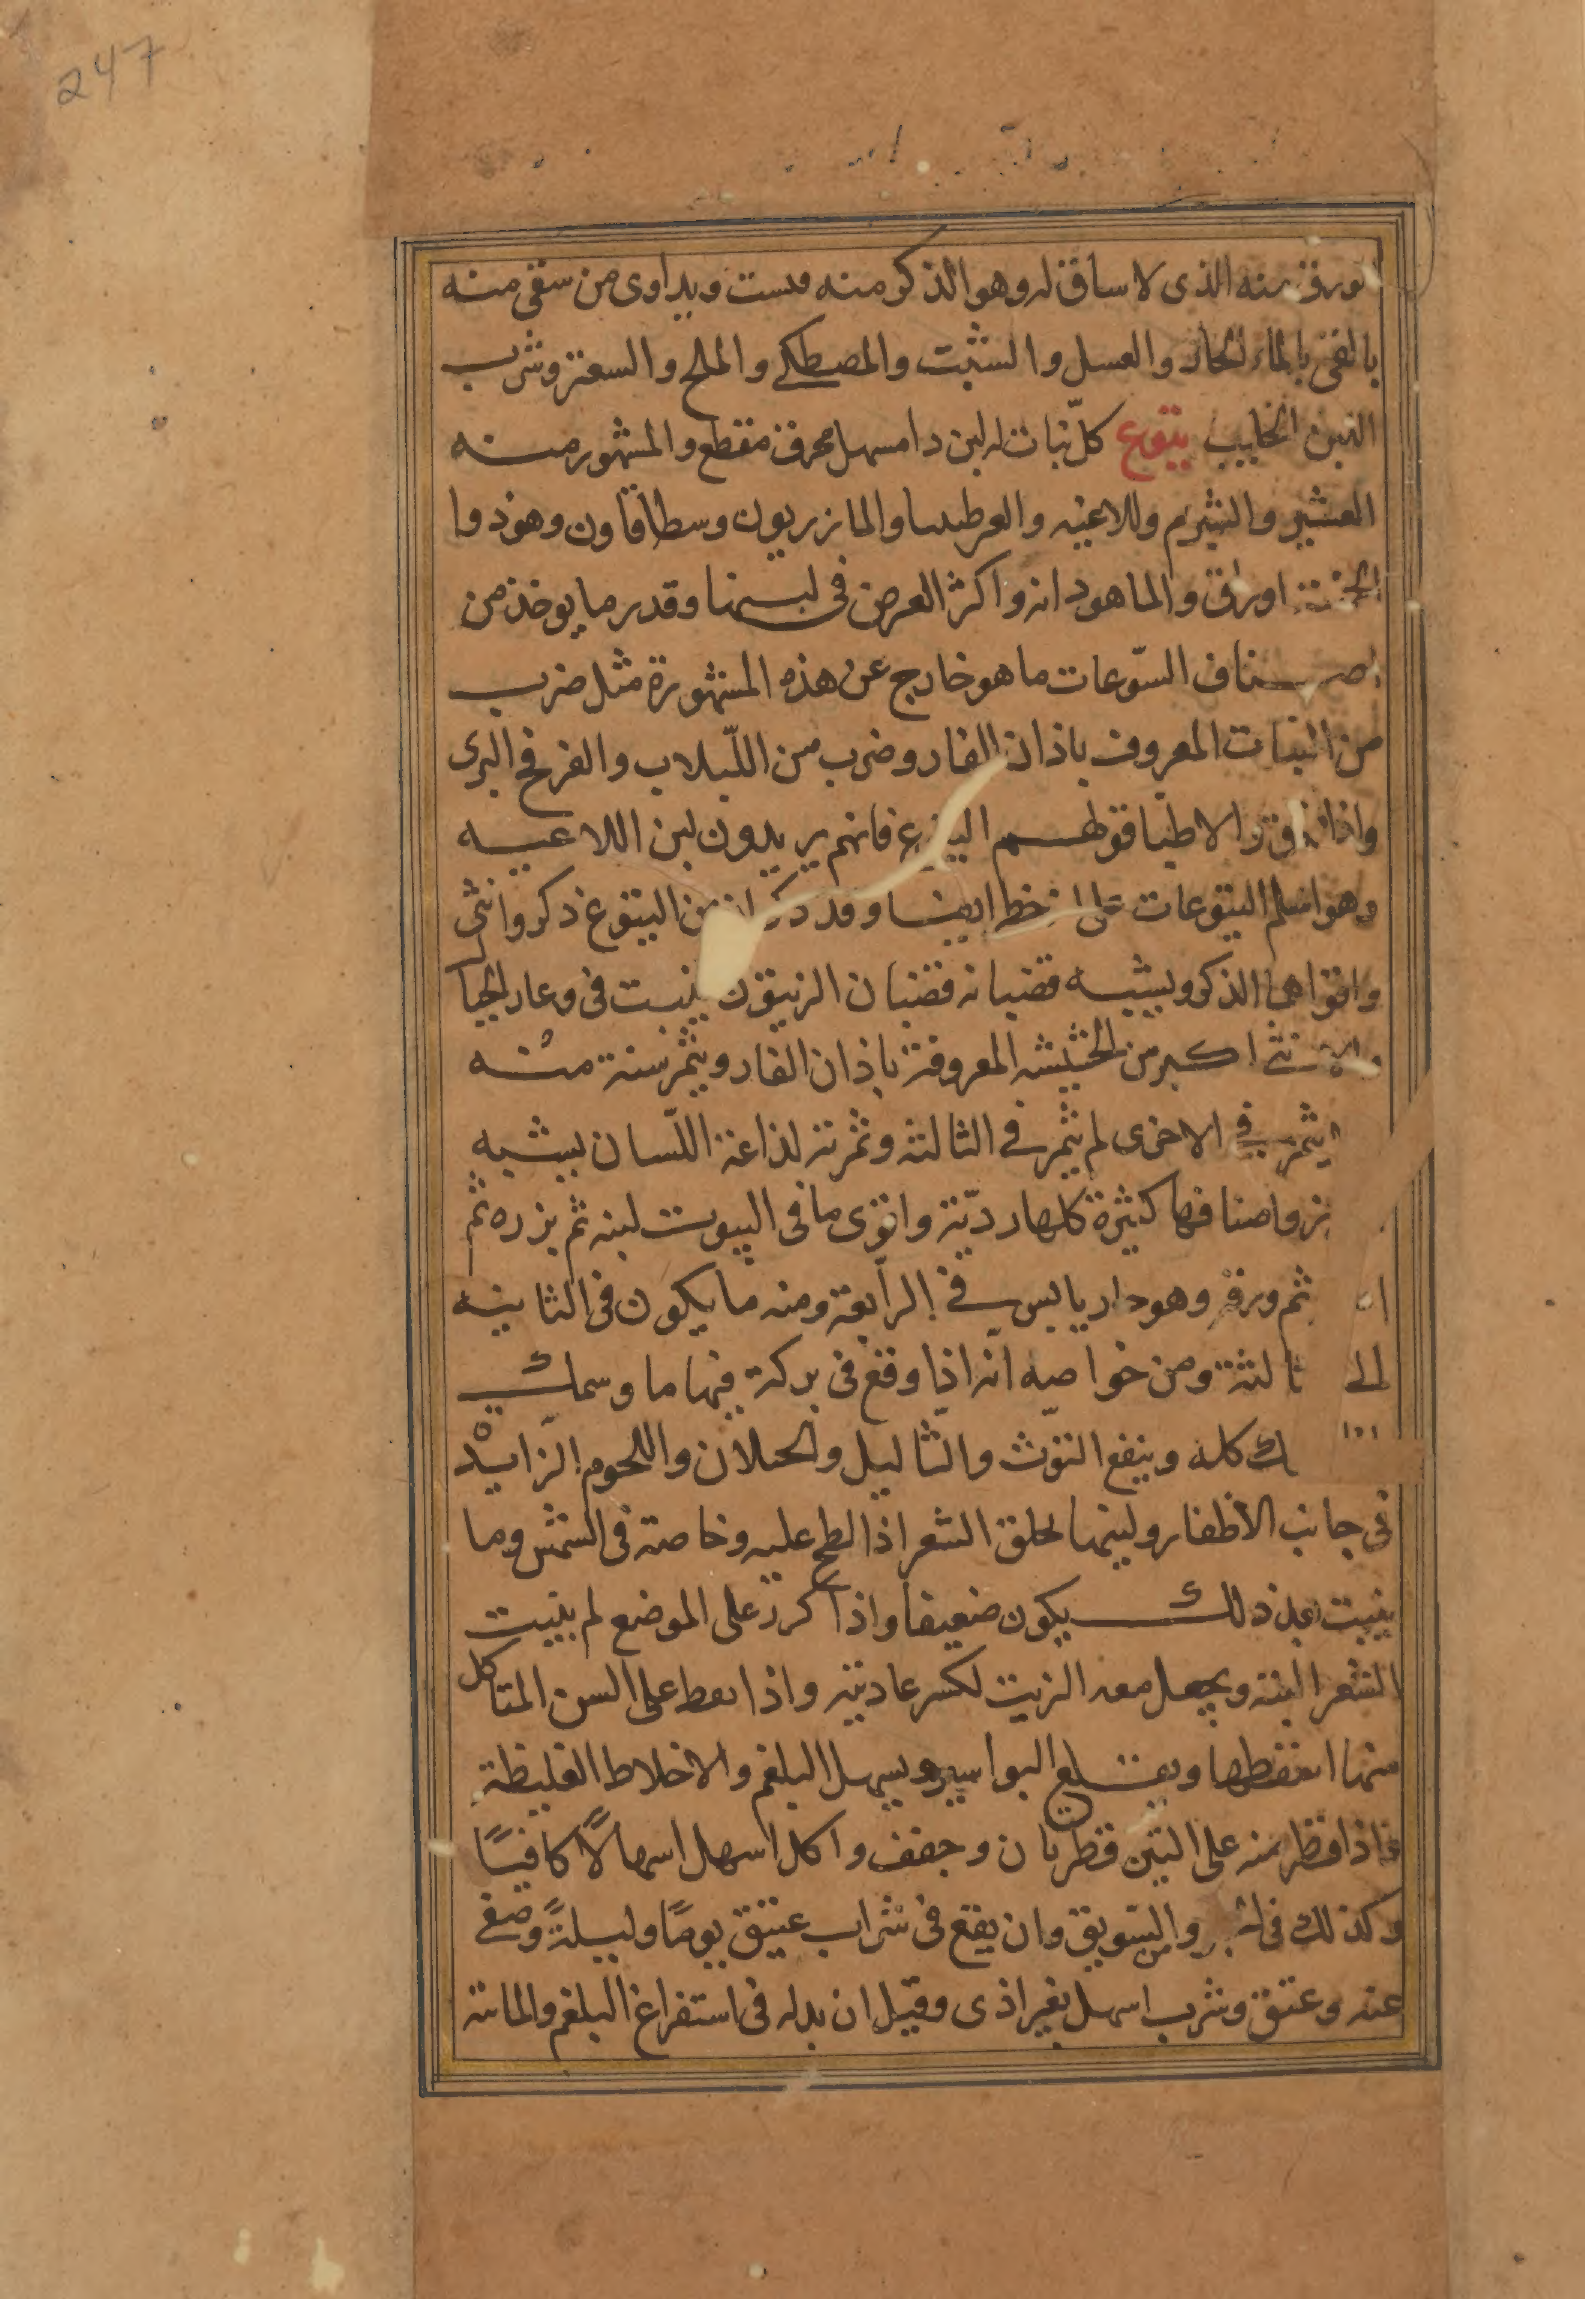 247
الورق منه الذى لا ساق له وهو الذكر منه وست ويداوى من سقى منه
بالقى بالماء الحار والعسل والشبت والمصطكى والملح والسعتر وشرب
اللبن الحليب يتوع كلّ نبات له لبن دا مسهل محرق مقطع والمشهور منه
العشير والشبرم واللاعيه والعرطنيثا والمازريون وسطافاون وهو ذوا
الخمسة اوراق والماهودانه واكثر الغرض فى لبنها وقدر ما يوخذ من
اصناف السّوعات ما هو خارج عن هذه المشهورة مثل ضرب
من النبات المعروف باذان الفار وضرب من اللّبلاب والفرفخ البرى
واذا الاطبا قولهم اليتوع فانهم يريدون لبن اللاعيه
وهو اسلم اليتوعات على خطر ايضا وقد ذكر ان من اليتوع ذكر وانثى
واقواها الذكر ويشبه قضبانه قضبان الزيتون ينبت فى وعار الجبا
والانثى اكبر من الحشيشه المعروفة باذان الفار ويثمر سنة منه
يثمر فى الاخرى لم يثمر فى الثالثة وثمرته لذاعة اللّسان يشبه
واصنافها كثيرة كلها رديّة واقوى ما فى اليبوت لبنه ثم بزره ثم
ثم ورقه وهو حار يابس فى الرابعة ومنه ما يكون فى الثانيه
الى ثالثة ومن خواصه انه اذا وقع فى بركة فيها ما وسمك
ك كله وينفع التوث والثاليل والحىلان واللحوم الزايدة
فى جانب الاظفار ولبنها يحلق الشعر اذا لطخ عليه وخاصة فى الشمس وما
ينبت بعد ذلك يكون ضعيفا واذا كرر على الموضع لم ينبت
الشعر البتة ويجعل معه الزيت لكسر عاديته واذا بعط على السن المتاكل
منها اىعىطها ويقلع البواسير ويسهل البلغم والاخلاط الغليظة
فاذا قطر منه على التين قطرتان وجفف واكل اسهل اسهالًا كافيًا
وكذلك فى والسّويق وان يقع فى شراب عتيق يومًا وليلةً وصفى
عنه وعتق وشرب اسهل بغير اذى وقيل ان بدله فى استفراغ البلغم والمائية